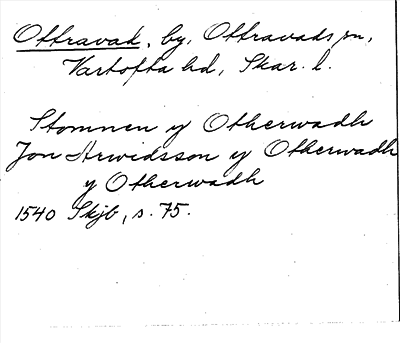 Ottravad, by, Ottravads sn,
Vartofta hd, Skar. l.
Stommen y Otherwadh
Jon Arwidsson y Otherwadh
y Otherwadh
1540 Skjb, s. 75.